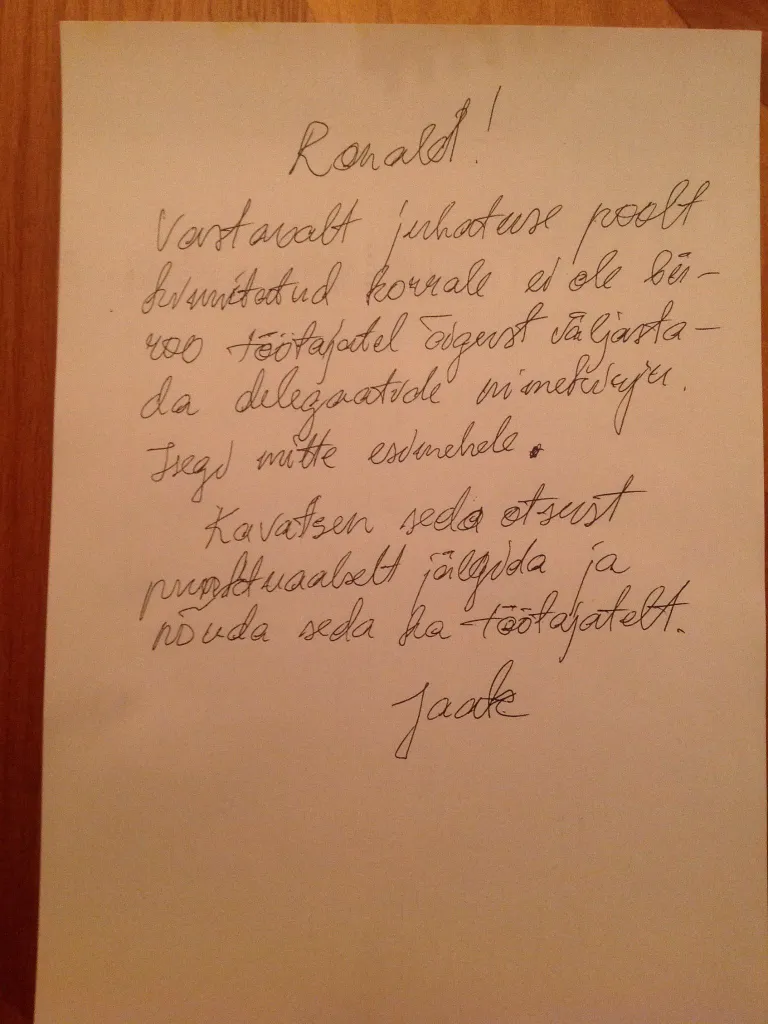 Ronald!
Vastavalt juhatuse poolt
kinnitatud korrale ei ole bü-
roo töötajatel õigust väljasta-
da delegaatide nimekirju.
Isegi mitte esimehele.
Kavatsen seda otsust
punktuaalselt jälgida ja
nõuda seda ka töötajatelt.
Jaak